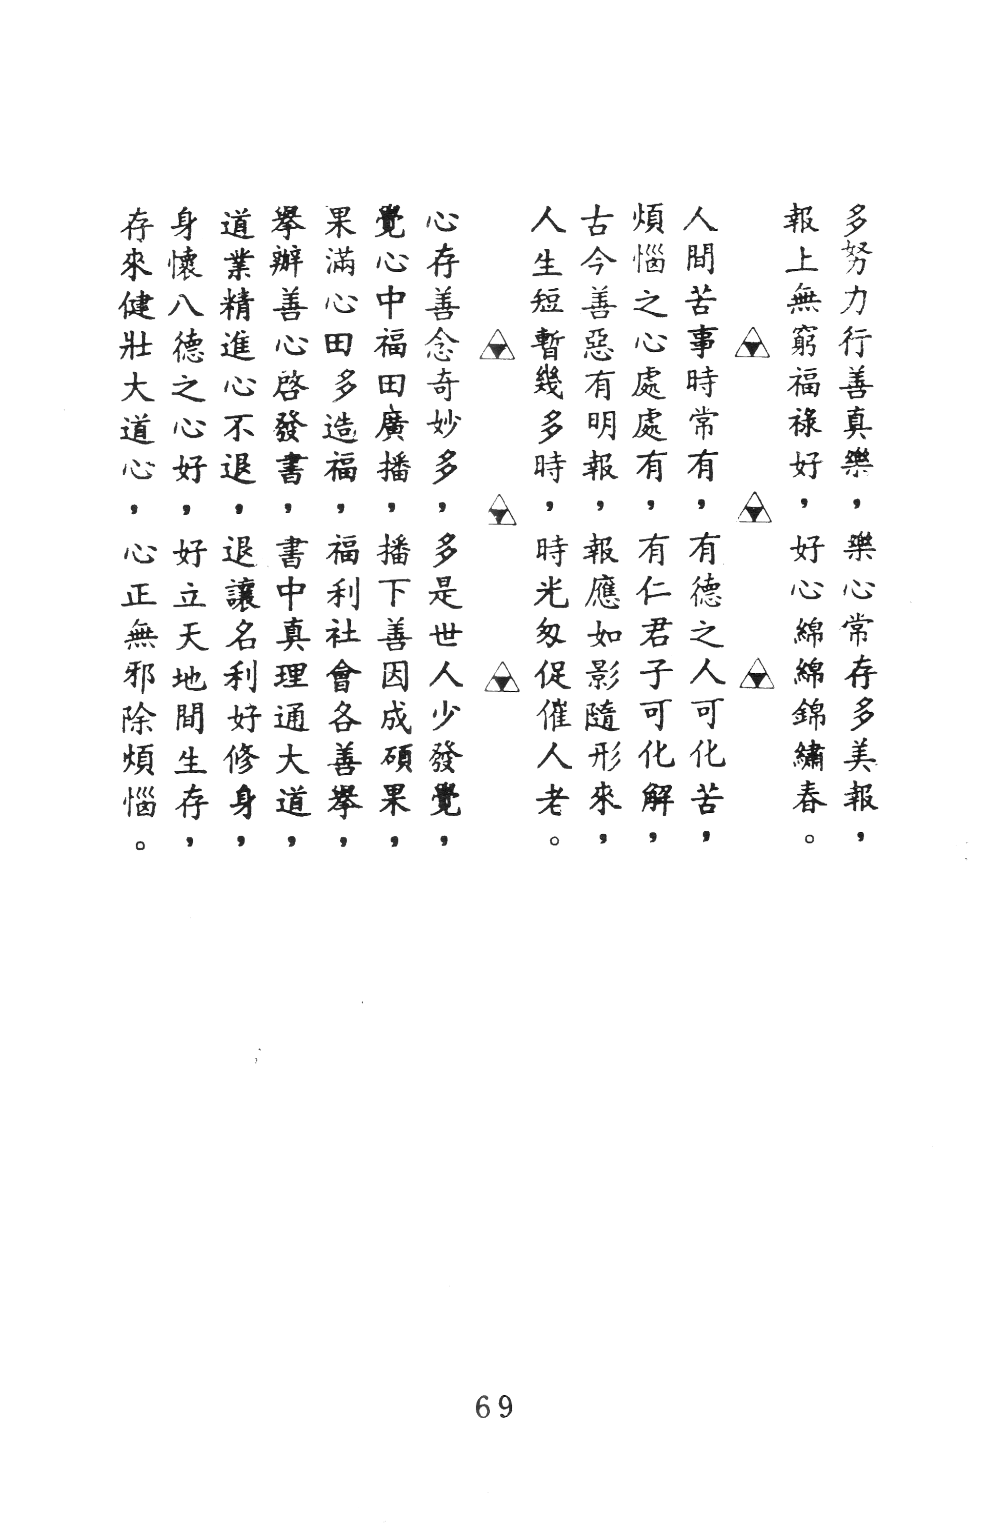 多努力行善真樂，樂心常存多美報，
報上無窮福祿好，好心綿綿錦繡春。
人間苦事時常有，有德之人可化苦，
煩惱之心處處有，有仁君子可化解，
古今善惡有明報，報應如影隨形來，
人生短暫幾多時，時光匆促催人老。
心存善念奇妙多，多是世人少發覺，
覺心中福田廣播，播下善因成碩果，
果滿心田多造福，福利社會各善舉，
舉辦善心啓發書，書中真理通大道，
道業精進心不退，退讓名利好修身，
身懷八德之心好，好立天地間生存，
存來健壯大道心，心正無邪除煩惱。
69